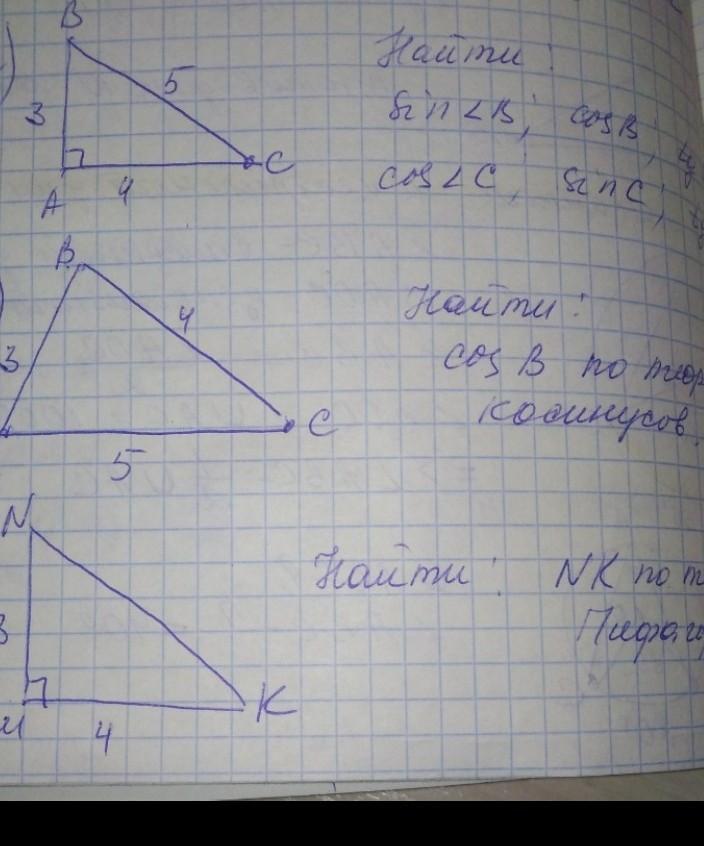 B
5
3
4
A
C
Найти:
Sin∠B; cosB; tg
cos∠C; sinC; tg
B
4
3
C
5
Найти:
cos B по теор
косинусов.
N
3
4
K
Найти: NK по т
Пифаг